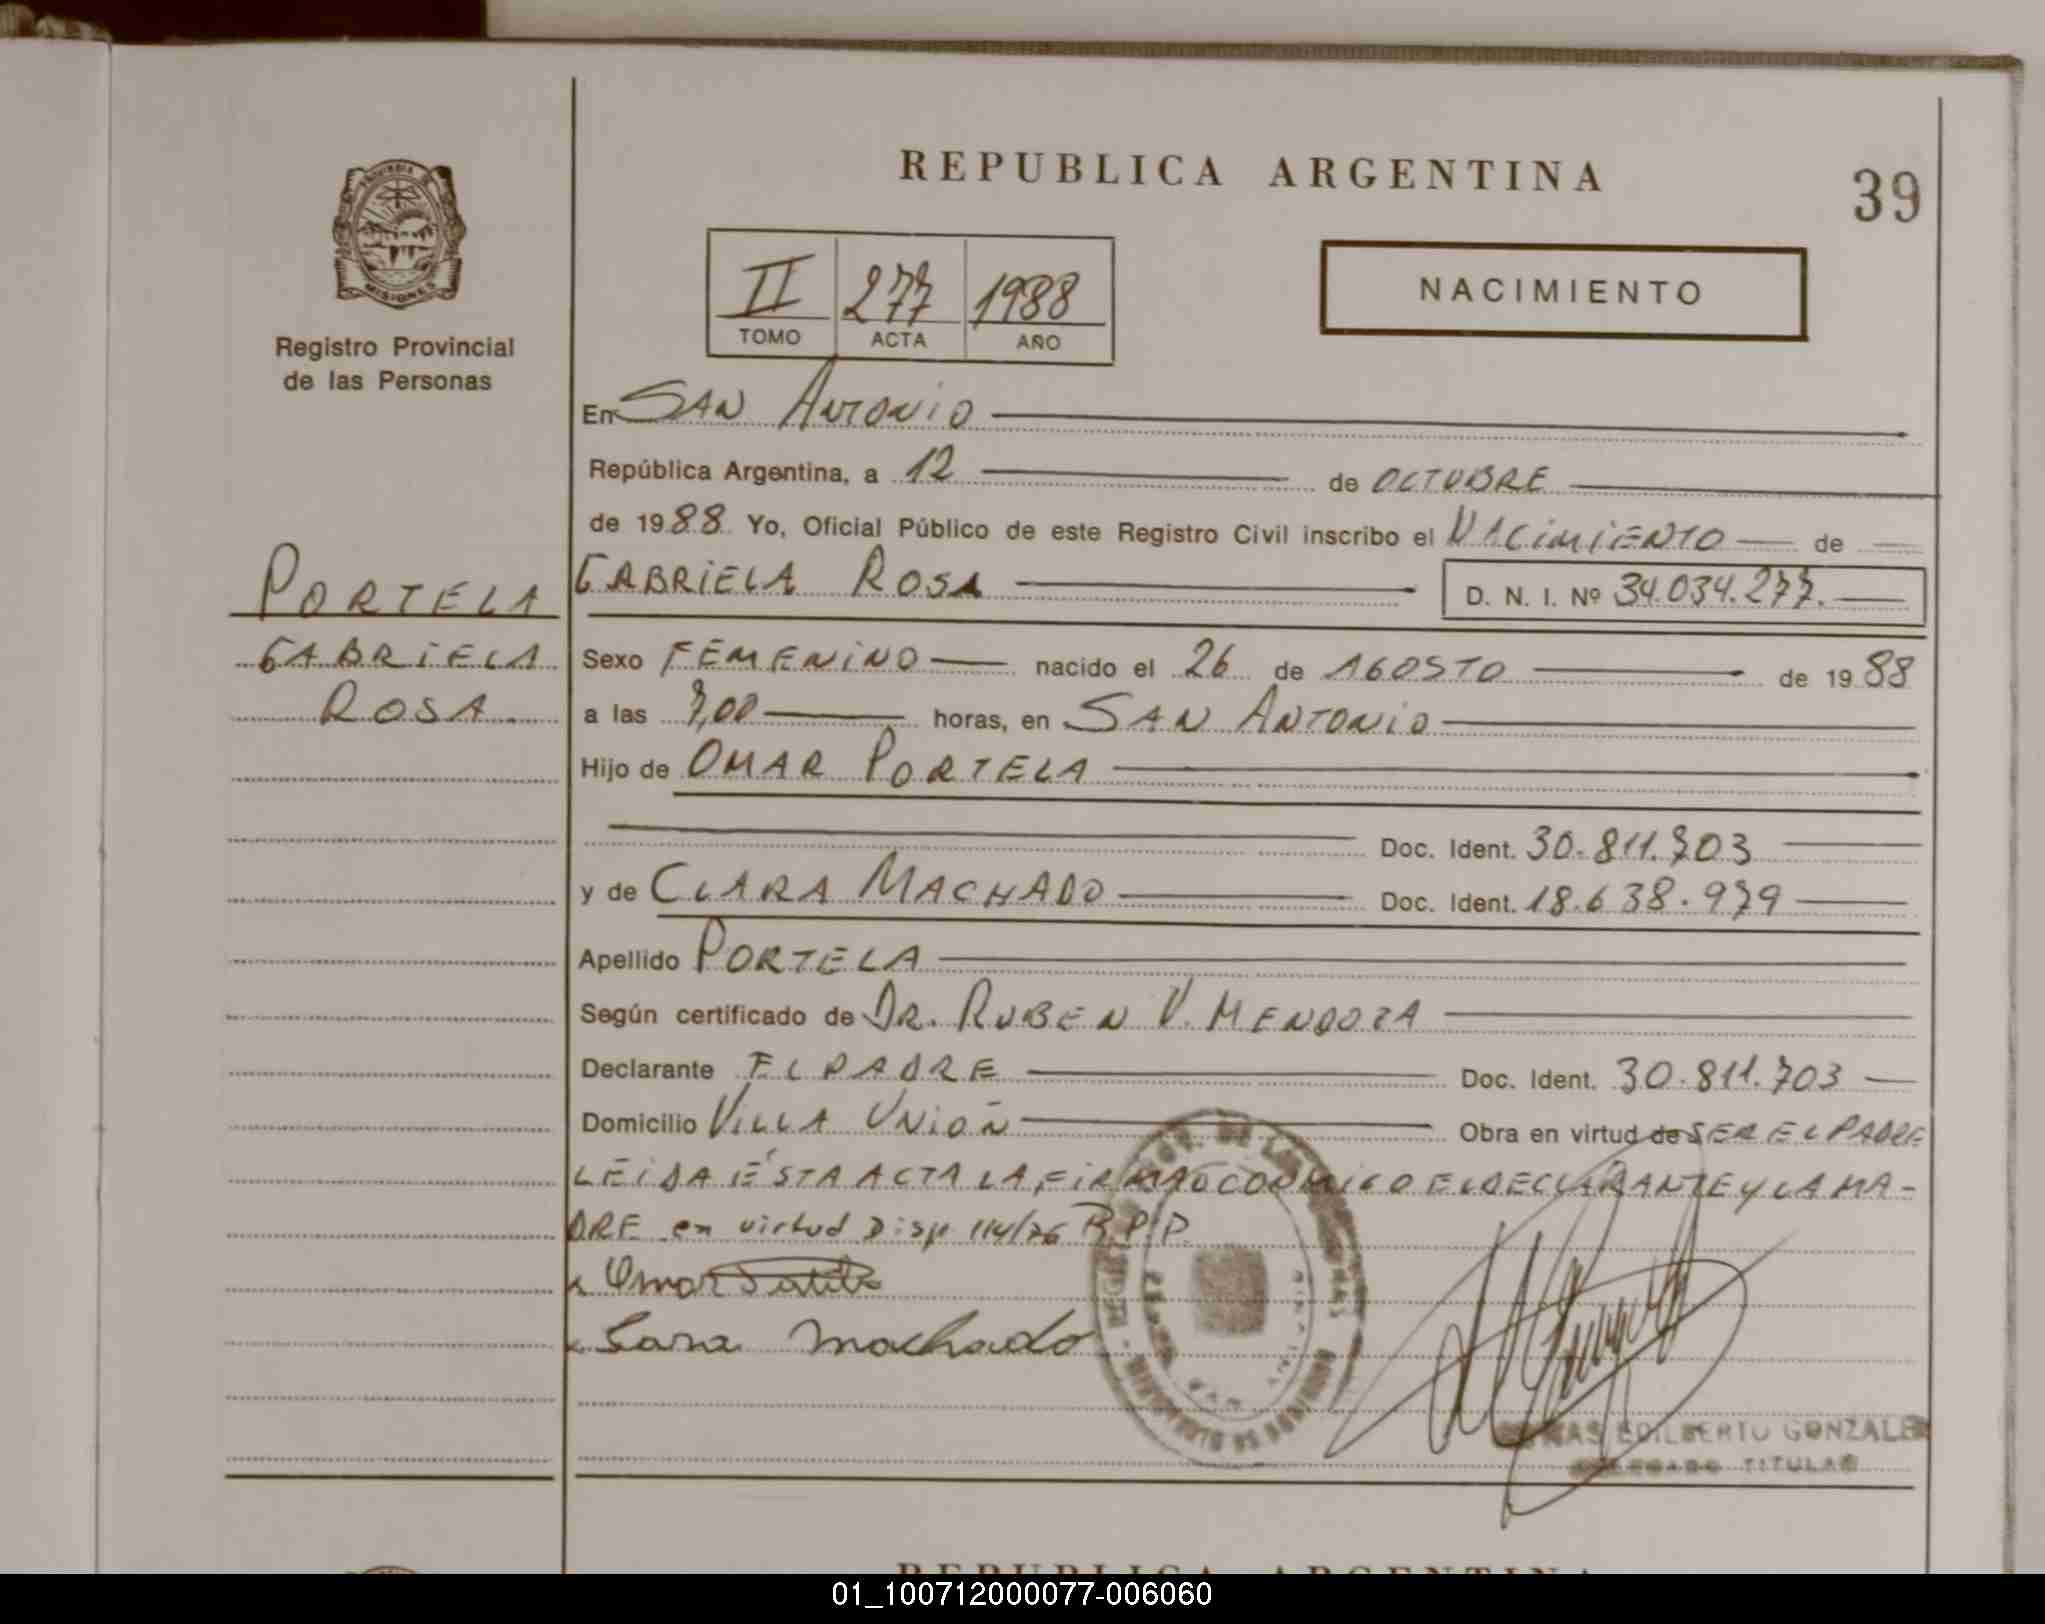 REPUBLICA ARGENTINA
39
PROVINCIA DE
MISIONES
Registro Provincial
de las Personas
II 277 1988
TOMO ACTA AÑO
NACIMIENTO
En SAN ANTONIO
República Argentina, a 12 de OCTUBRE
de 1988 Yo, Oficial Público de este Registro Civil inscribo el NACIMIENTO de
PORTELA
GABRIELA
ROSA
GABRIELA ROSA D. N. I. Nº 34.034.277.
Sexo FEMENINO nacido el 26 de AGOSTO de 1988
a las 7,00 horas, en SAN ANTONIO
Hijo de OMAR PORTELA
Doc. Ident. 30.811.703
y de CLARA MACHADO Doc. Ident. 18.638.979
Apellido PORTELA
Según certificado de DR. RUBEN V. MENDOZA
Declarante EL PADRE Doc. Ident. 30.811.703
Domicilio VILLA UNIÓN Obra en virtud de SER EL PADRE
LEIDA ÉSTA ACTA LA FIRMAN CONMIGO EL DECLARANTE Y LA MA-
DRE en virtud Disp 114/76 R.P.P.
Omar
Sara Machado
EDILBERTO GONZALE
TITULAR
REPUBLICA ARGENTINA
01_100712000077-006060